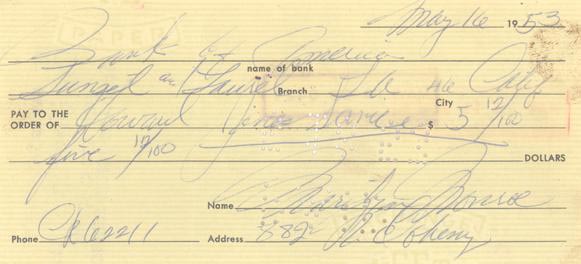 May 16 1953
Bank of America
name of bank
Sunset and Laurel Branch LA 46 Calif
City
PAY TO THE
ORDER OF Howard $ 5 12/100
five 12/100 DOLLARS
Name Marilyn Monroe
Phone CR 62211 Address 882 N. Doheny